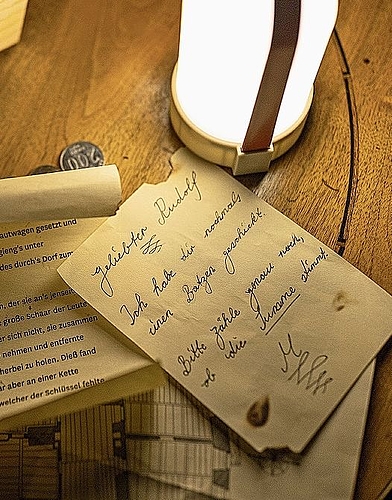 200
autwagen gesetzt und
gieng's unter
des durch's Dorf zum
en, der sie an's jenseit
große Schaar der Leute
er sich nicht, sie zusammen
nehmen und entfernte
herbei zu holen. Dieß fand
ar aber an einer Kette
welcher der Schlüssel fehlte
Geliebter Rudolf
Ich habe dir nochmals
einen Batzen geschickt.
Bitte zähle genau nach,
ob die Summe stimmt.